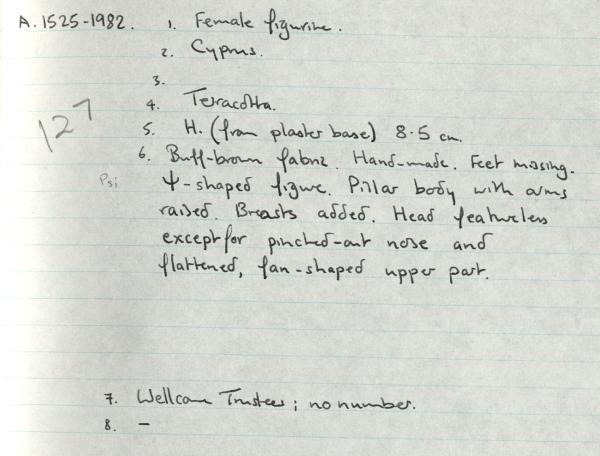 A.1525-1982. 1. Female figurine.
2. Cyprus.
3.
4. Terracotta.
127
5. H. (from plaster base) 8.5 cm.
6. Buff-brown fabric. Hand-made. Feet missing.
Psi
Ψ-shaped figure. Pillar body with arms
raised. Breasts added. Head featureless
except for pinched-out nose and
flattened, fan-shaped upper part.
7. Wellcome Trustees; no number.
8. –